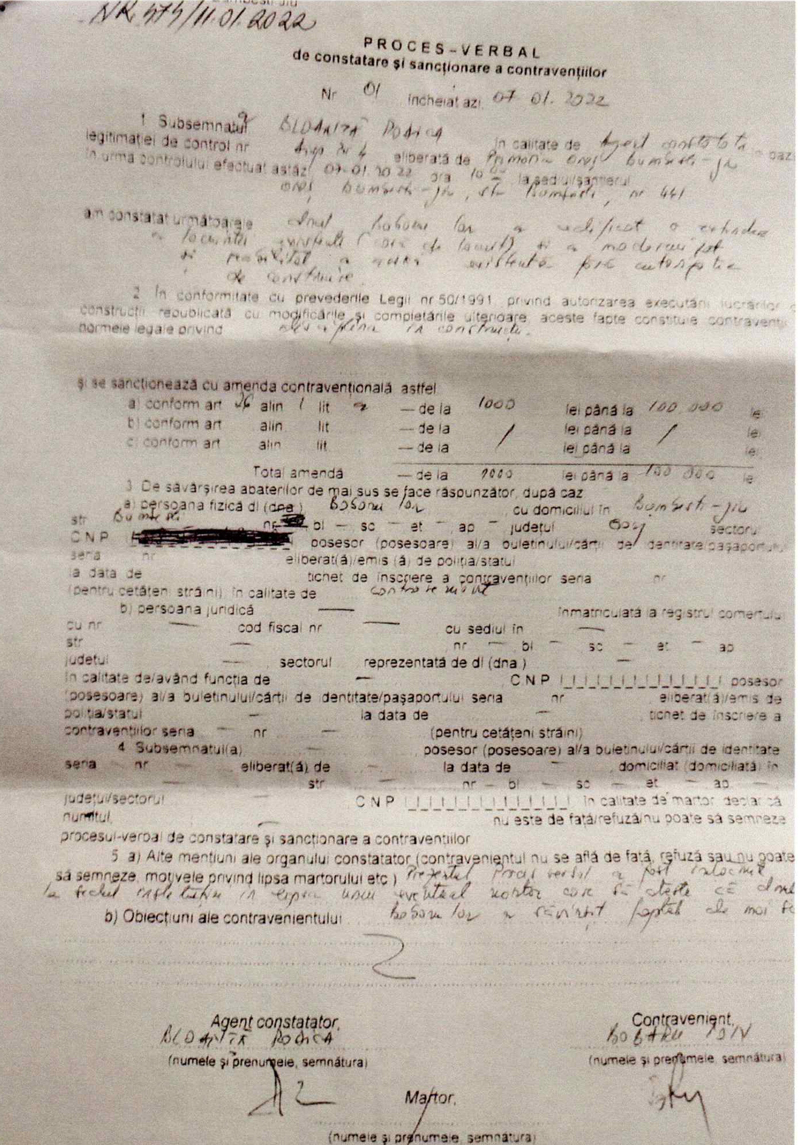 NR. 575/11.01.2022
PROCES-VERBAL
de constatare și sancționare a contravențiilor
Nr 01 încheiat azi, 07-01.2022
1 Subsemnatul BLOANȚĂ RODICA în calitate de Agent constatator în baza
legitimației de control nr eliberată de Primăria Oraș Bumbești-Jiu
în urma controlului efectuat astăz 07-01.2022 ora 10 la sediul/șantierul
oraș Bumbești-Jiu, str Bumbești, nr 441
am constatat următoarele dnul Bobaru Ion a edificat o extindere
a locuinței existente (casă de locuit) și a modernizat
și a existentă fără autorizație
de construire
2 În conformitate cu prevederile Legii nr 50/1991, privind autorizarea executării lucrărilor
construcții republicată cu modificările și completările ulterioare, aceste fapte constituie contravenții
normele legale privind disciplina în construcții.
și se sancționează cu amenda contravențională astfel
a) conform art 26 alin 1 lit a — de la 1000 lei până la 100.000 lei
b) conform art alin lit — de la / lei până la / lei
c) conform art alin lit — de la lei până la lei
Total amendă — de la 1000 lei până la 100.000 lei
3 De săvârșirea abaterilor de mai sus se face răspunzător, după caz
a) persoana fizică dl (dna) Bobaru Ion, cu domiciliul în Bumbești-Jiu
str Bumbești nr bl — sc — et — ap — județul Gorj sectorul
CNP posesor (posesoare) al/a buletinului/cărții de identitate/pașaportului
seria nr eliberat(ă)/emis (ă) de poliția/statul
la data de tichet de înscriere a contravențiilor seria nr
(pentru cetățeni străini), în calitate de contravenient
b) persoana juridică — înmatriculată la registrul comerțului
cu nr — cod fiscal nr — cu sediul în —
str — nr — bl — sc — et — ap
județul — , sectorul reprezentată de dl (dna) —
în calitate de/având funcția de — , CNP posesor
(posesoare) al/a buletinului/cărții de identitate/pașaportului seria — nr eliberat(ă)/emis de
poliția/statul — la data de — , tichet de înscriere a
contravențiilor seria — nr — (pentru cetățeni străini)
4 Subsemnatul(a) — , posesor (posesoare) al/a buletinului/cărții de identitate
seria — nr — , eliberat(ă) de — la data de — , domiciliat (domiciliată) în
— str — nr — bl — sc — et — ap —
județul/sectorul CNP în calitate de martor declar că
numitul, — nu este de față/refuză/nu poate să semneze
procesul-verbal de constatare și sancționare a contravențiilor
5 a) Alte mențiuni ale organului constatator (contravenientul nu se află de față, refuză sau nu poate
să semneze, motivele privind lipsa martorului etc) Prezentul Proces verbal a fost întocmit
la sediul instituției în lipsa unui eventual martor care să ateste că dnul
b) Obiecțiuni ale contravenientului Bobaru Ion a săvârșit faptele de mai sus
Agent constatator, Contravenient,
BLOANȚĂ RODICA BOBARU ION
(numele și prenumele, semnătura) (numele și prenumele, semnătura)
Martor,
(numele și prenumele, semnătura)